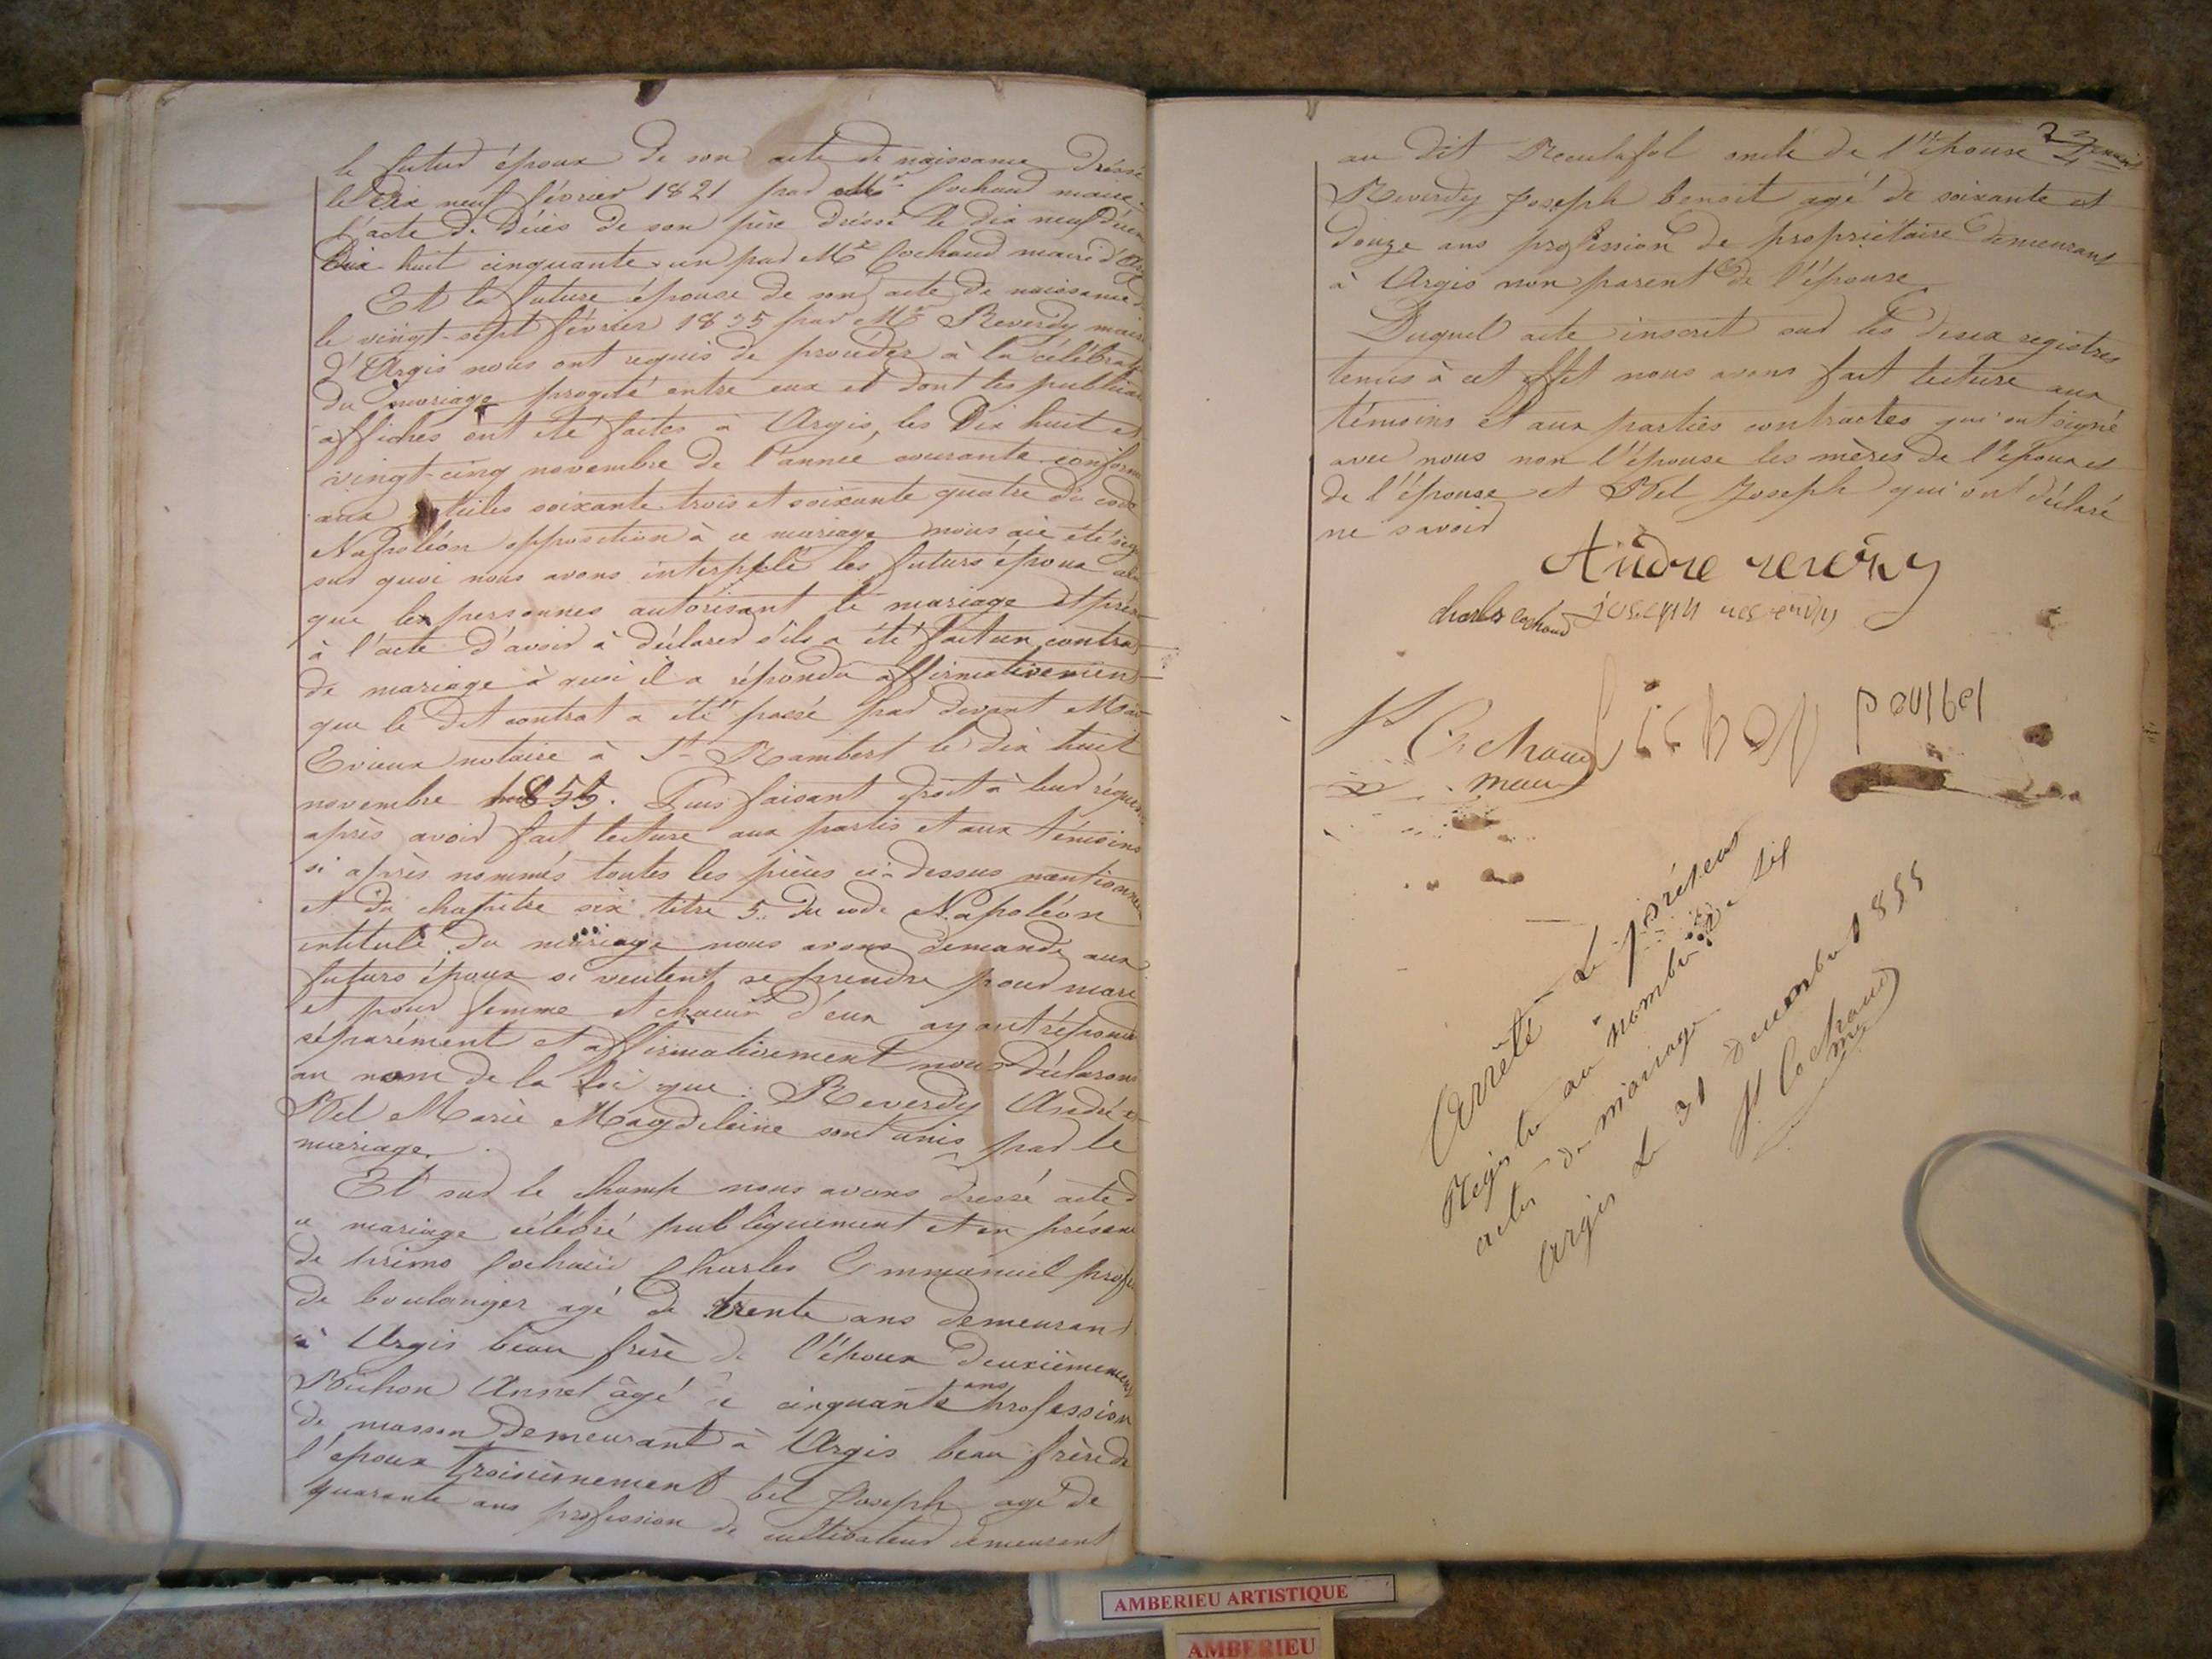 le futur époux de son acte de naissance dréssé
le dix neuf février 1821 par Mr Cochaud maire
l'acte de décès de son père dréssé le dix neuf
dix huit cinquante un par Mr Cochaud maire d'
Et la future épouse de son acte de naissance
le vingt-sept février 1835 par Mr Reverdy maire
d'Argis nous ont requis de procéder à la
du mariage progété entre eux et dont les
affiches ont été faites à Argis, les Dix huit et
vingt-cinq novembre de l'année courante
aux articles soixante trois et soixante quatre du code
Napoléon opposition à ce mariage nous aie été
sur quoi nous avons interpellé les futurs époux
que les personnes autorisant le mariage et
à l'acte d'avoir à déclarer s'ils a été fait un contrat
de mariage à quoi il a répondu affirmativement
que le dit contrat a été passé par devant
notaire à St Rambert le dix huit
novembre 1855. Puis faisant droit à leur
après avoir fait lecture aux partis et aux témoins
si après nommés toutes les pièces ci-dessus
et du chapitre six titre 5 du code Napoléon
intitulé du mariage nous avons demandé aux
futurs époux si veulent se prendre pour mari
et pour femme et chacun d'eux ayant répondu
séparément et affirmativement nous déclarons
au nom de la loi que : Reverdy André et
Bel Marie Magdeleine sont unis par le
mariage.
Et sur le champ nous avons dressé acte d
ce mariage célébré publiquement et en
de primo Cochaud Charles Emmanuel
de boulanger agé de trente ans demeurant
à Argis beau frère de l'époux deuxièmement
Bichon Annet âgé de cinquante ans profession
de masson demeurant à Argis beau frère de
l'époux troisièmement bel Joseph agé de
quarante ans profession de cultivateur demeurant
au dit oncle de l'épouse
Reverdy Joseph benoit agé de soixante et
douze ans profession de propriétaire demeurant
à Argis non parent de l'épouse.
Duquel acte inscrit sur les deux registres
tenus à cet effet nous avons fait lecture aux
témoins et aux parties contractes qui ont signé
avec nous non l'épouse les mères de l'époux et
de l'épouse et Bel Joseph qui ont déclaré
ne savoir
Andre reverdy
charles cochaud joseph reverdy
Jh Cochaud
maire
Arrêté le présent
Registre au nombre de
actes de mariage
Argis le 31 decembre 1855
Jh Cochaud
AMBERIEU ARTISTIQUE
AMBERIEU